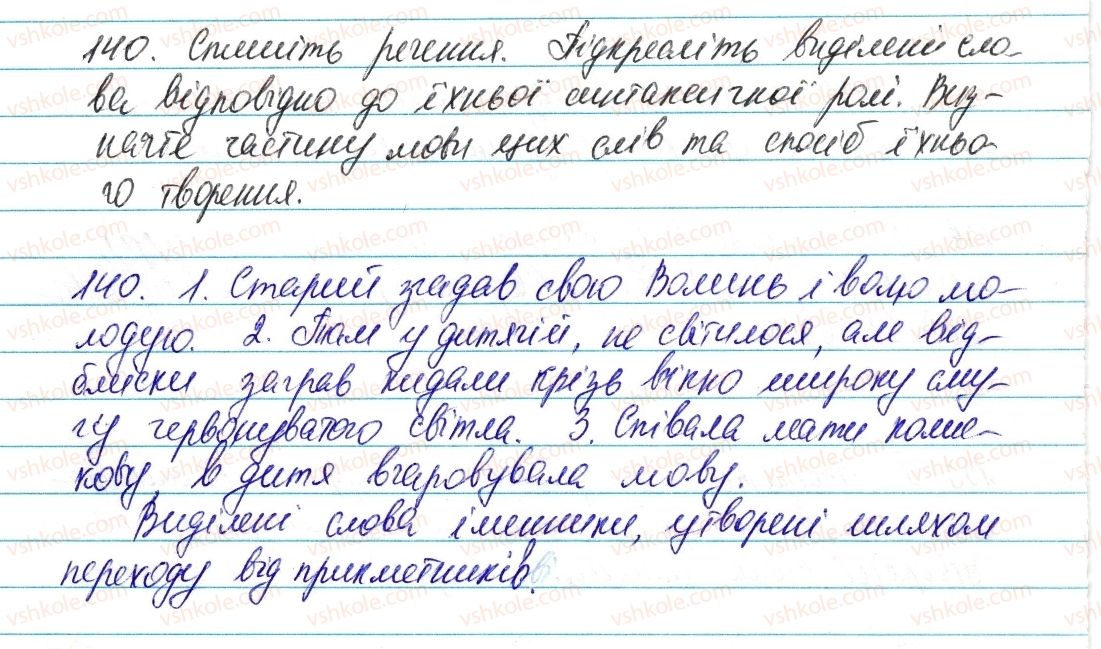 140. Спишіть речення. Підкресліть виділені сло-
ва відповідно до їхньої синтаксичної ролі. Виз-
начте частину мови цих слів та спосіб їхньо-
го творення.
140. 1. Старий згадав свою Волинь і волю мо-
лодую. 2. Там у дитячій, не світилося, але від-
блиски заграв кидали крізь вікно широку сму-
гу червонуватого світла. 3. Співала мати колис-
кову, в дитя вчаровувала мову.
Виділені слова іменники, утворені шляхом
переходу від прикметників.
vshkole.com